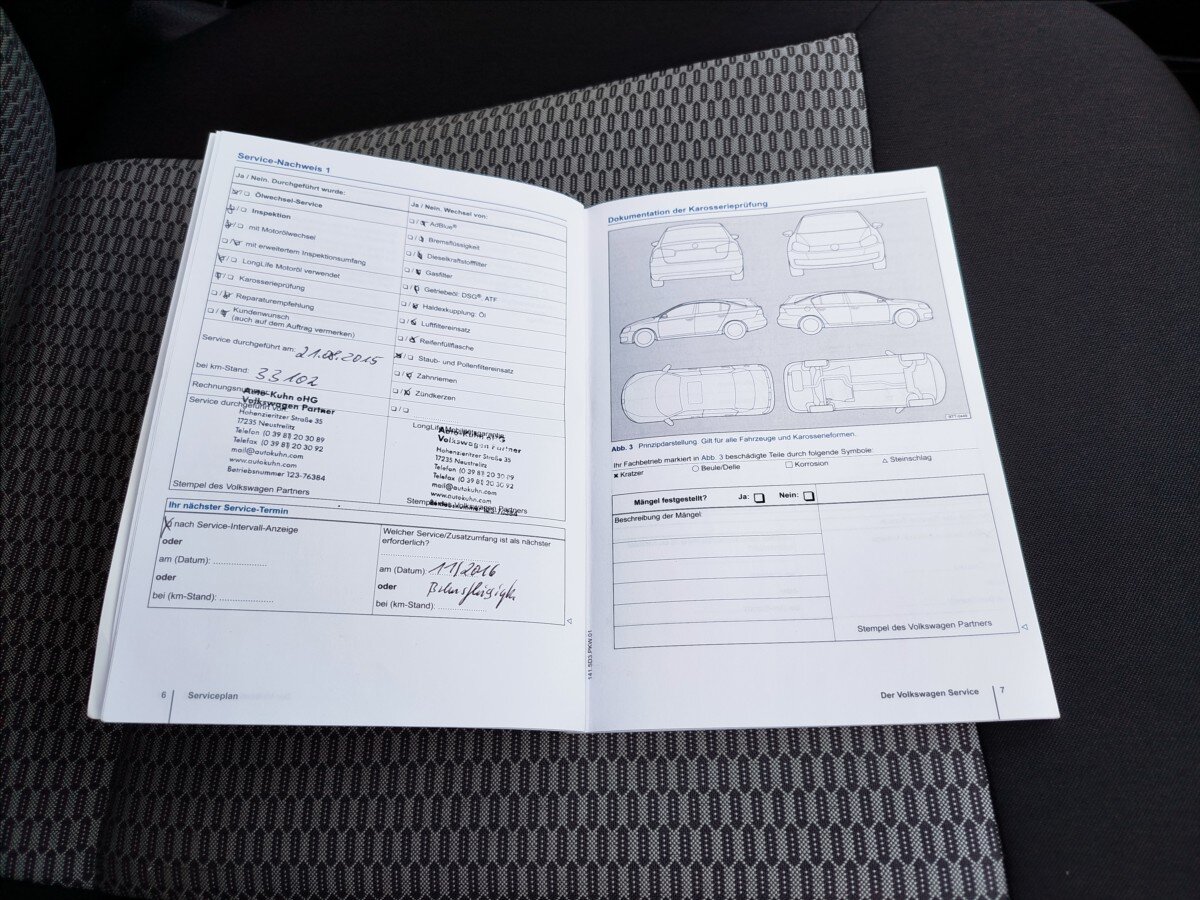 Service-Nachweis 1
Ja / Nein. Durchgeführt wurde:
Ölwechsel-Service
Inspektion
mit Motorölwechsel
mit erweitertem Inspektionsumfang
LongLife Motoröl verwendet
Karosserieprüfung
Reparaturempfehlung
Kundenwunsch
(auch auf dem Auftrag vermerken)
Service durchgeführt am: 21.08.2015
bei km-Stand: 33102
Rechnungsnummer:
Service durchgeführt von:
Auto-Kuhn oHG
Volkswagen Partner
Hohenzieritzer Straße 35
17235 Neustrelitz
Telefon (0 39 81) 20 30 89
Telefax (0 39 81) 20 30 92
mail@autokuhn.com
www.autokuhn.com
Betriebsnummer 123-76384
Stempel des Volkswagen Partners
Ja / Nein. Wechsel von:
AdBlue®
Bremsflüssigkeit
Dieselkraftstofffilter
Gasfilter
Getriebeöl: DSG®, ATF
Haldexkupplung: Öl
Luftfiltereinsatz
Reifenfüllflasche
Staub- und Pollenfiltereinsatz
Zahnriemen
Zündkerzen
LongLife
Auto-Kuhn oHG
Volkswagen Partner
Hohenzieritzer Straße 35
17235 Neustrelitz
Telefon (0 39 81) 20 30 89
Telefax (0 39 81) 20 30 92
mail@autokuhn.com
www.autokuhn.com
Stempel des Volkswagen Partners
Ihr nächster Service-Termin
nach Service-Intervall-Anzeige
oder
am (Datum):
oder
bei (km-Stand):
Welcher Service/Zusatzumfang ist als nächster
erforderlich?
am (Datum): 11/2016
oder Bremsflüssigk
bei (km-Stand):
6 Serviceplan
Dokumentation der Karosserieprüfung
Abb. 3 Prinzipdarstellung. Gilt für alle Fahrzeuge und Karosserieformen.
Ihr Fachbetrieb markiert in Abb. 3 beschädigte Teile durch folgende Symbole:
Kratzer Beule/Delle Korrosion Steinschlag
Mängel festgestellt? Ja: Nein:
Beschreibung der Mängel:
Stempel des Volkswagen Partners
141.5D3.PKW.01
Der Volkswagen Service 7